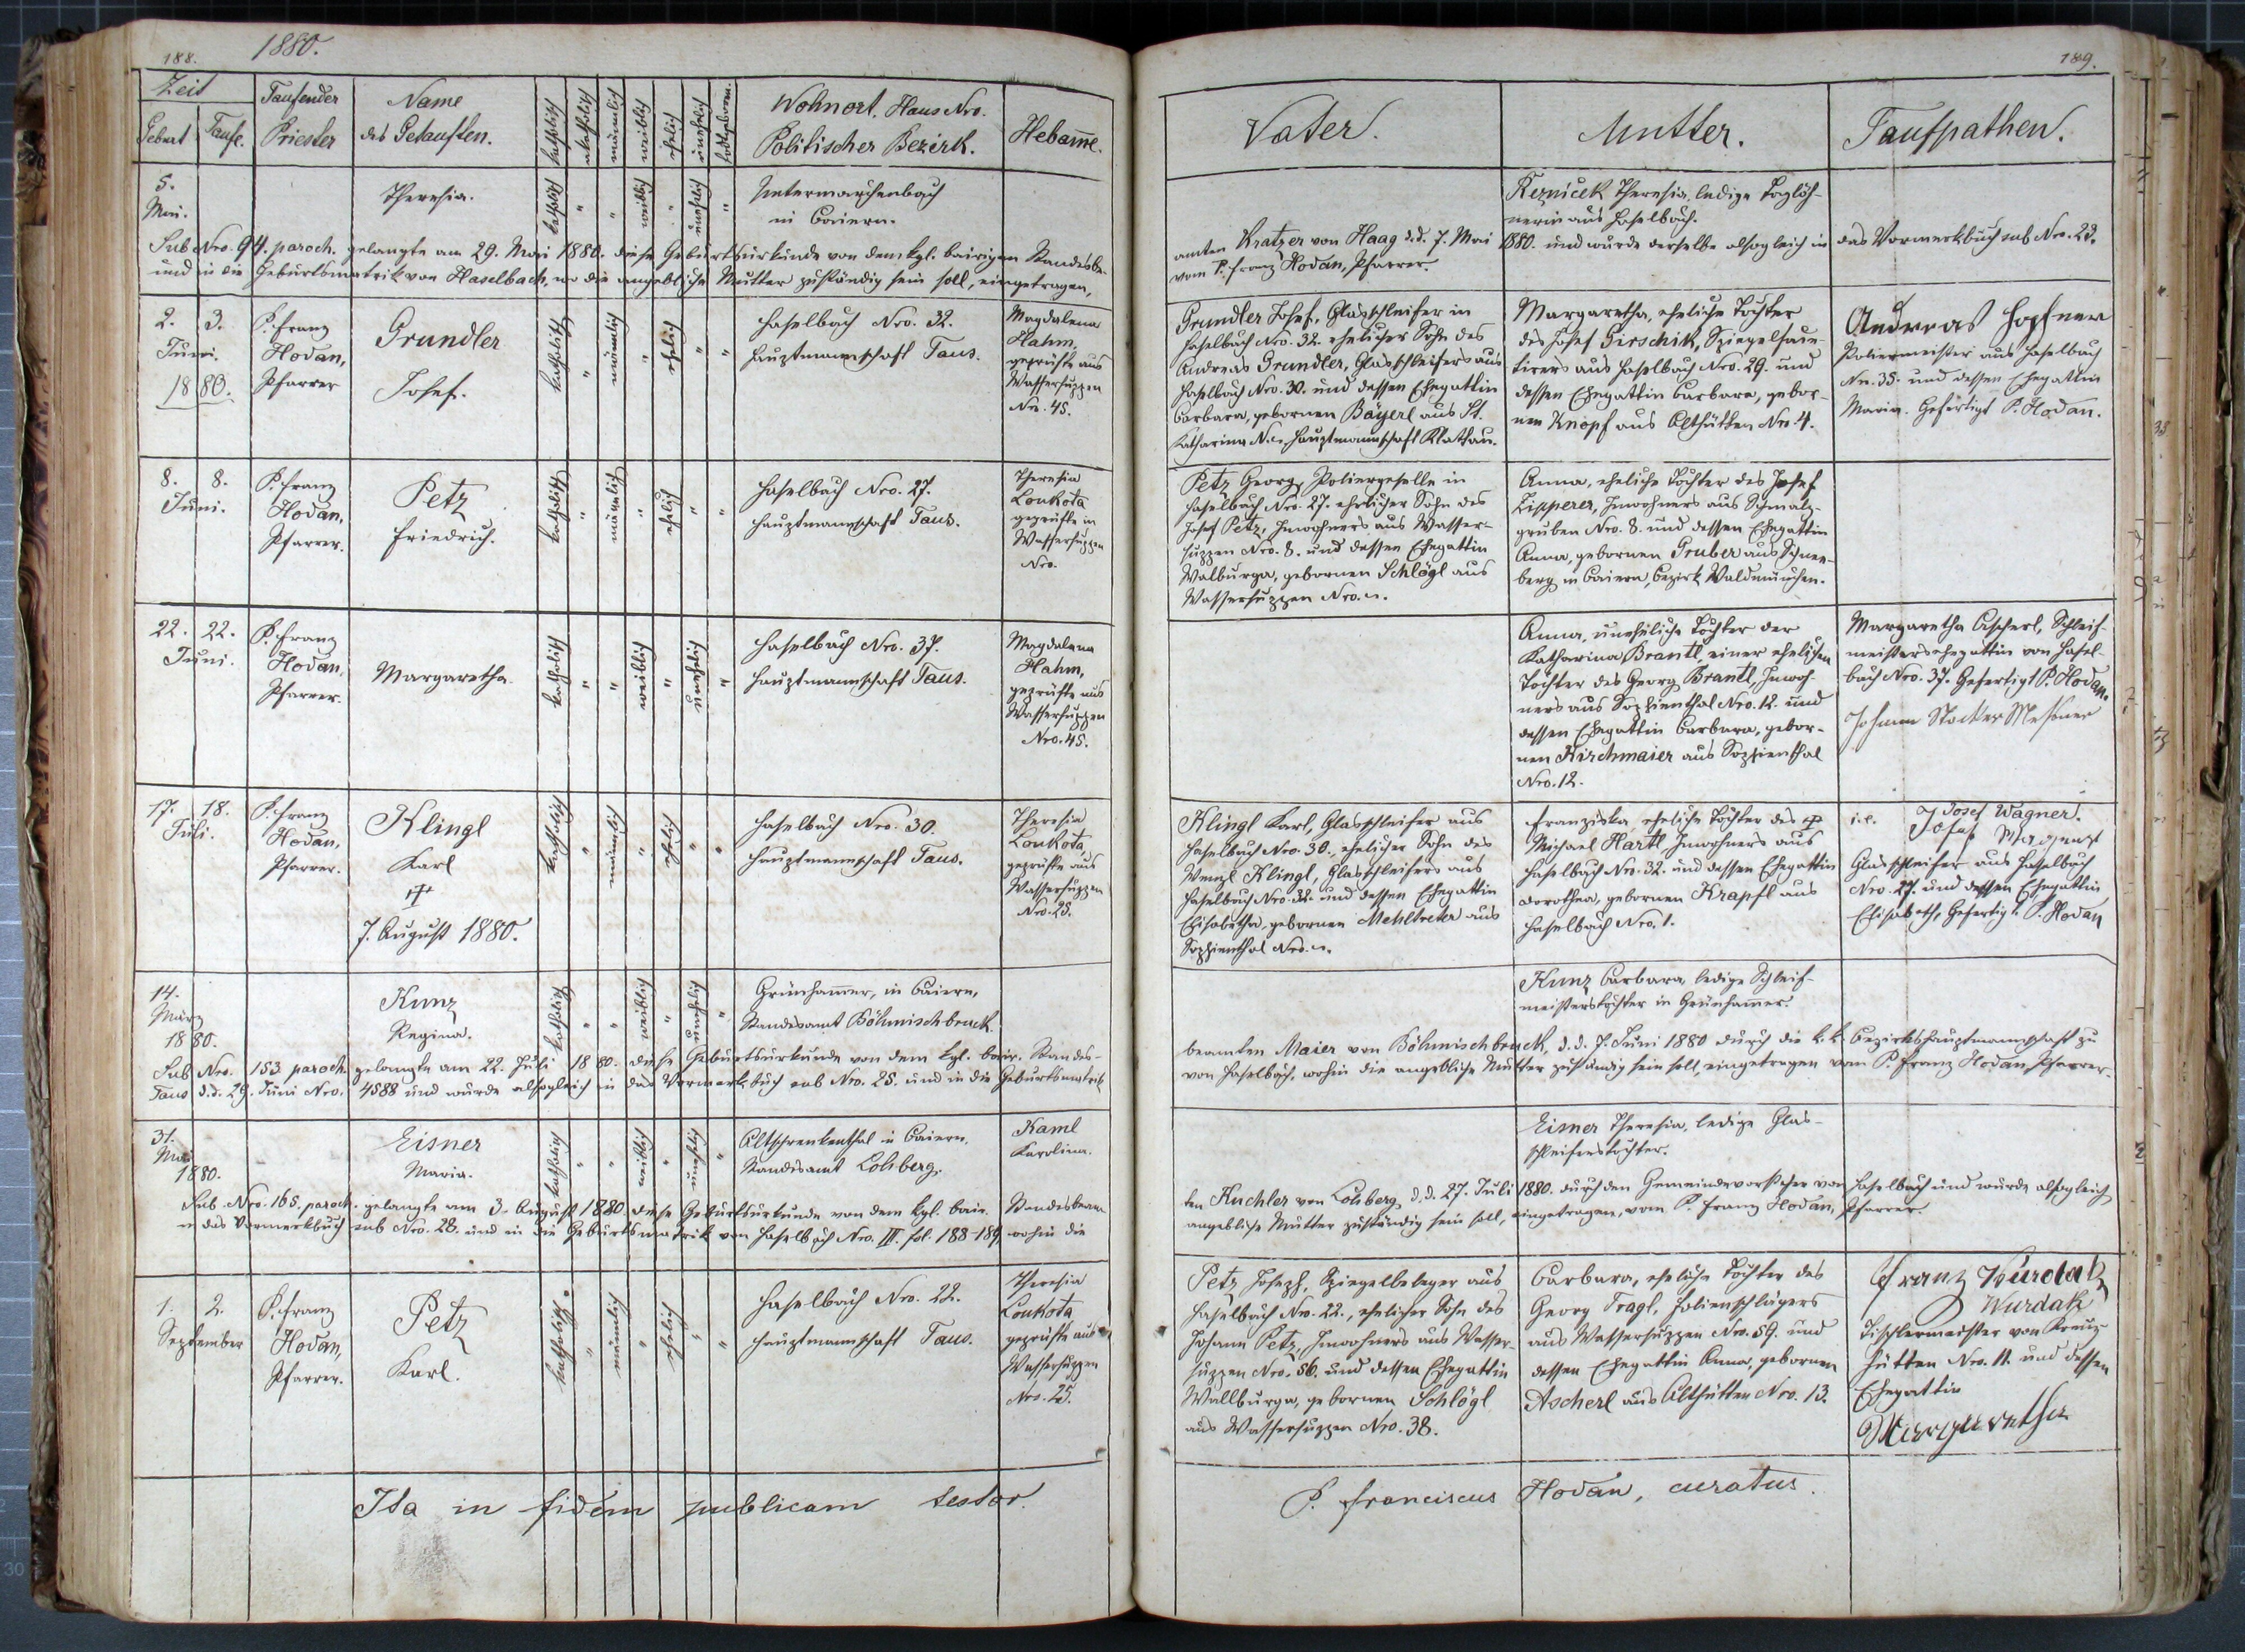 188.
1880.
Zeit
Geburt
Taufe.
Taufender
Priester
Name
des Getauften.
katholisch
akatholisch
männlich
weiblich
ehelich
unehelich
todtgeboren.
Wohnort, Haus Nro.
Politischer Bezirk.
Hebamme.
5.
Mai.
Theresia.
katholisch
"
"
weiblich
"
unehelich
"
Untermarchenbach
in Baiern.
Sub Nro. 94. paroch. gelangte am 29. Mai 1880. diese Geburtsurkunde von dem kgl. bairigen Standesbe-
und in die Geburtsmatrik von Haselbach, wo die angebliche Mutter zuständig sein soll, eingetragen,
2. 3.
Juni.
1880.
P. Franz
Hodan,
Pfarrer
Grundler
Josef.
katholisch
"
männlich
"
ehelich
"
"
Haselbach Nro. 32.
Hauptmannschaft Taus.
Magdalena
Hahm,
geprüfte aus
Wassersuppen
Nro. 45.
8. 8.
Juni.
P. Franz
Hodan,
Pfarrer.
Petz
Friedrich.
katholisch
"
männlich
"
ehelich
"
"
Haselbach Nro. 27.
Hauptmannschaft Taus.
Theresia
Loukota
geprüfte in
Wassersuppen
Nro.
22. 22.
Juni.
P. Franz
Hodan,
Pfarrer.
Margaretha.
katholisch
"
"
weiblich
"
unehelich
"
Haselbach Nro. 37.
Hauptmannschaft Taus.
Magdalena
Hahm,
geprüfte aus
Wassersuppen
Nro. 45.
17. 18.
Juli.
P. Franz
Hodan,
Pfarrer.
Klingl
Karl
7. August 1880.
katholisch
"
männlich
"
ehelich
"
"
Haselbach Nro. 30.
Hauptmannschaft Taus.
Theresia
Loukota,
geprüfte aus
Wassersuppen
Nro. 25.
14.
März
1880.
Kunz
Regina.
katholisch
"
"
weiblich
"
unehelich
"
Grünhammer, in Baiern,
Standesamt Böhmischbruck.
Sub Nro. 153 paroch. gelangte am 22. Juli 1880. diese Geburtsurkunde von dem kgl. bair. Standes-
Taus d.d. 29. Juni Nro. 4588 und wurde alsogleich in das Vormerkbuch sub Nro. 25. und in die Geburtsmatrik
31.
Mai
1880.
Eisner
Maria.
katholisch
"
"
weiblich
"
unehelich
"
Altschrenkenthal in Baiern,
Standesamt Lohberg.
Kaml
Karolina.
Sub Nro. 165. paroch. gelangte am 3. August 1880 diese Geburtsurkunde von dem kgl. bair. Standesbeam-
in das Vormerkbuch sub Nro. 28. und in die Geburtsmatrik von Haselbach Nro. III. fol. 188-189 wohin die
1. 2.
September
P. Franz
Hodan,
Pfarrer.
Petz
Karl.
katholisch
"
männlich
"
ehelich
"
"
Haselbach Nro. 22.
Hauptmannschaft Taus.
Theresia
Loukota
geprüfte aus
Wassersuppen
Nro. 25.
Ita in fidem publicam testor.
189.
Vater.
Mutter.
Taufpathen.
Kezniček Theresia, ledige Taglöh-
nerin aus Haselbach.
amten Kratzer von Haag d.d. 7. Mai 1880. und wurde derselbe alsogleich in das Vormerkbuch sub Nro. 23.
vom P. Franz Hodan, Pfarrer.
Grundler Josef, Glasschleifer in
Haselbach Nro. 32. ehelicher Sohn des
Andreas Grundler, Glasschleifers aus
Haselbach Nro. 30. und dessen Ehegattin
Barbara, gebornen Bäyerl aus St.
Katharina N. Hauptmannschaft Klattau.
Margaretha, eheliche Tochter
des Josef Gerschik, Spiegelfaun-
tirers aus Haselbach Nro. 29. und
dessen Ehegattin Barbara, gebor-
nen Knopf aus Althütten Nro. 4.
Andreas Hopfner
Poliermeister aus Haselbach
Nro. 35. und dessen Ehegattin
Maria. Gefertigt P. Hodan.
Petz Georg, Poliergeselle in
Haselbach Nro. 27. ehelicher Sohn des
Josef Petz, Inwohners aus Wasser-
suppen Nro. 8. und dessen Ehegattin
Walburga, gebornen Schlögl aus
Wassersuppen Nro.
Anna, eheliche Tochter des Josef
Zipperer, Inwohners aus Schmalz-
gruben Nro. 8. und dessen Ehegattin
Anna, gebornen Gruber aus Schnee-
berg in Baiern, Bezirk Waldmünchen.
Anna, uneheliche Tochter der
Katharina Brantl, einer ehelichen
Tochter des Georg Brantl, Inwoh-
ners aus Sophienthal Nro. 12. und
dessen Ehegattin Barbara, gebor-
nen Kirchmaier aus Sophienthal
Nro. 12.
Margaretha Ascherl, Schleif-
meistersehegattin von Hasel-
bach Nro. 37. Gefertigt P. Hodan.
Johann Stocker Messner
Klingl Karl, Glasschleifer aus
Haselbach Nro. 30., ehelicher Sohn des
Wenzl Klingl, Glasschleifers aus
Haselbach Nro. 32. und dessen Ehegattin
Elisabetha, gebornen Mehltreter aus
Sophienthal Nro.
Franziska, eheliche Tochter des
Michael Hartl, Inwohners aus
Haselbach Nro. 32. und dessen Ehegattin
Dorothea, gebornen Krapfl aus
Haselbach Nro. 1.
i.e. Josef Wagner.
Josef
Glasschleifer aus Haselbach
Nro. 27. und dessen Ehegattin
Elisabeth, Gefertigt P. Hodan
Kunz Barbara, ledige Schleif-
meisterstochter in Grünhammer.
beamten Maier von Böhmischbruck, d.d. 7. Juni 1880 durch die k.k. Bezirkshauptmannschaft zu
von Haselbach, wohin die angebliche Mutter zuständig sein soll eingetragen vom P. Franz Hodan, Pfarrer.
Eisner Theresia, ledige Glas-
schleiferstochter.
ten Kuchler von Lohberg, d.d. 27. Juli 1880. durch den Gemeindevorsteher von Haselbach und wurde alsogleich
angebliche Mutter zuständig sein soll, eingetragen, vom P. Franz Hodan, Pfarrer.
Petz Joseph, Spiegelbeleger aus
Haselbach Nro. 22., ehelicher Sohn des
Johann Petz, Inwohners aus Wasser-
suppen Nro. 56. und dessen Ehegattin
Wallburga, gebornen Schlögl
aus Wassersuppen Nro. 38.
Barbara, eheliche Tochter des
Georg Fragl, Folienschlägers
aus Wassersuppen Nro. 59. und
dessen Ehegattin Anna, gebornen
Ascherl aus Althütten Nro. 13.
Franz Wurdak
Wurdak
Tischlermeister von Kreuz-
hütten Nro. 11. und dessen
Ehegattin
Margaretha
P. Franciscus Hodan, curatus.